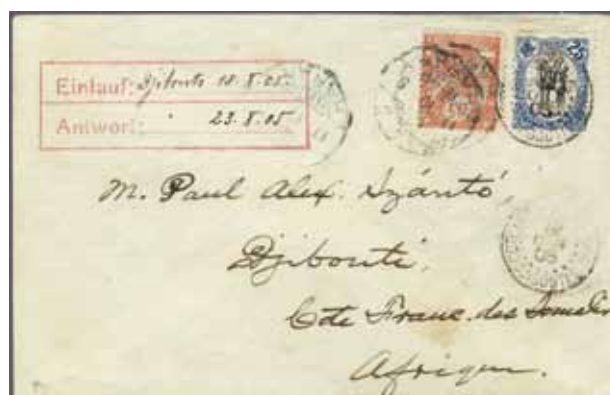 25
Einlauf: Djibouti 18.V.05.
Antwort: " 23.V.05
M. Paul Alex. Szántó,
Djibouti,
Cote Franc. des Somalis
Afrique.